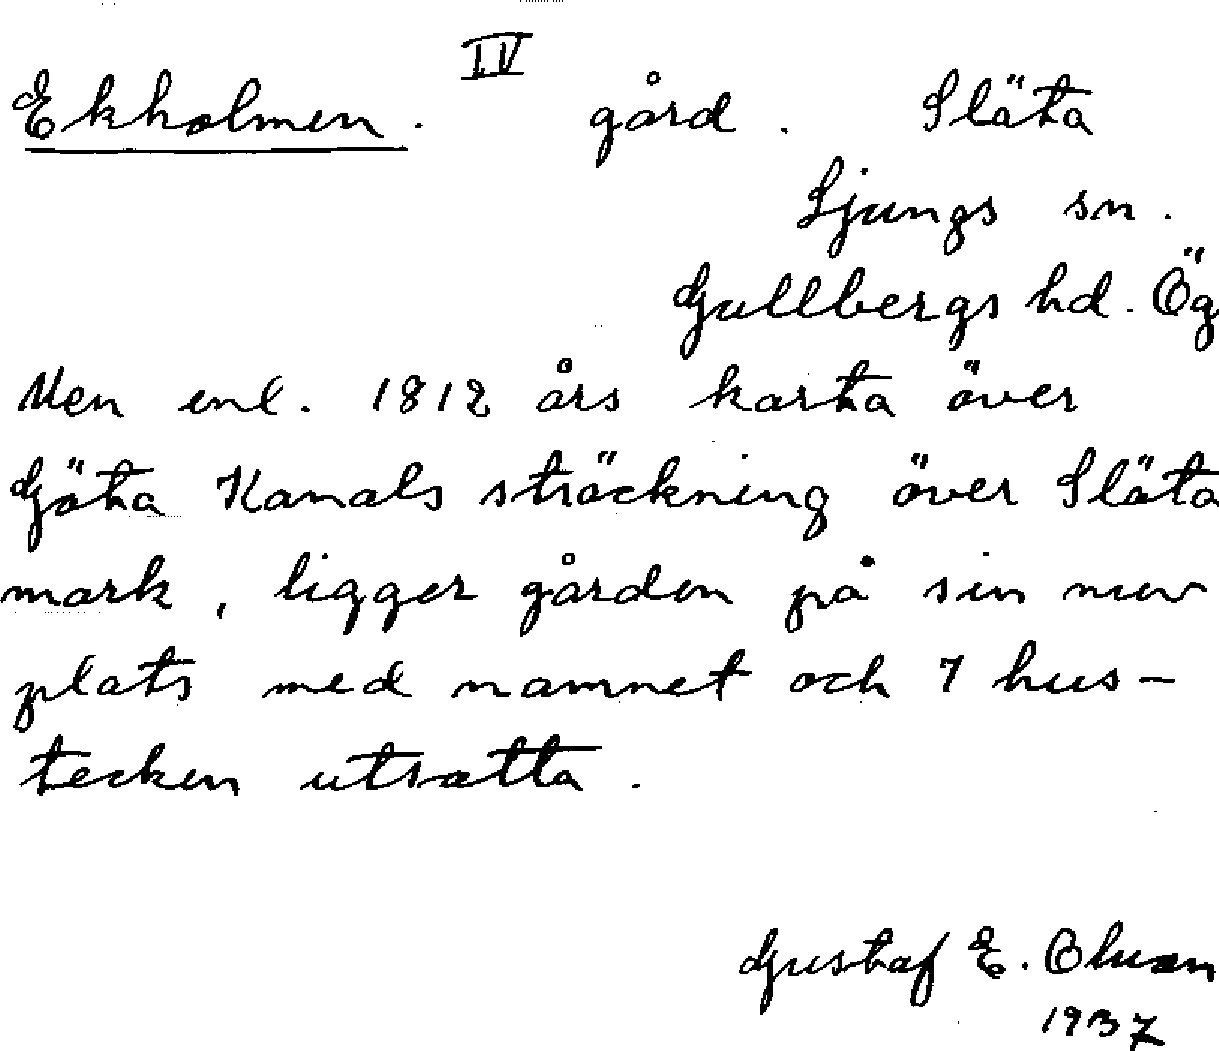 IV
Ekholmen. gård. Släta
Ljungs sn.
Gullbergs hd. Ög
Men enl. 1812 års karta över
Göta Kanals sträckning över Släta
mark, ligger gården på sin nuv
plats med namnet och 7 hus-
tecken utsatta.
Gustaf E.
1937